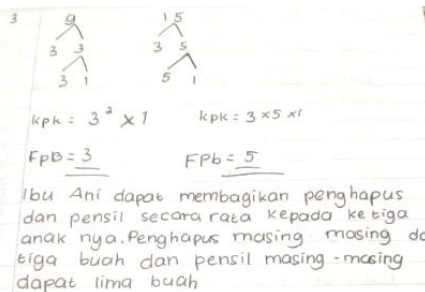 3 9 15
3 3 3 5
3 1 5 1
kpk = 3² × 1 kpk = 3 × 5 × 1
FpB = 3 FPb = 5
Ibu Ani dapat membagikan penghapus
dan pensil secara rata kepada ketiga
anak nya. Penghapus masing masing da
tiga buah dan pensil masing - masing
dapat lima buah